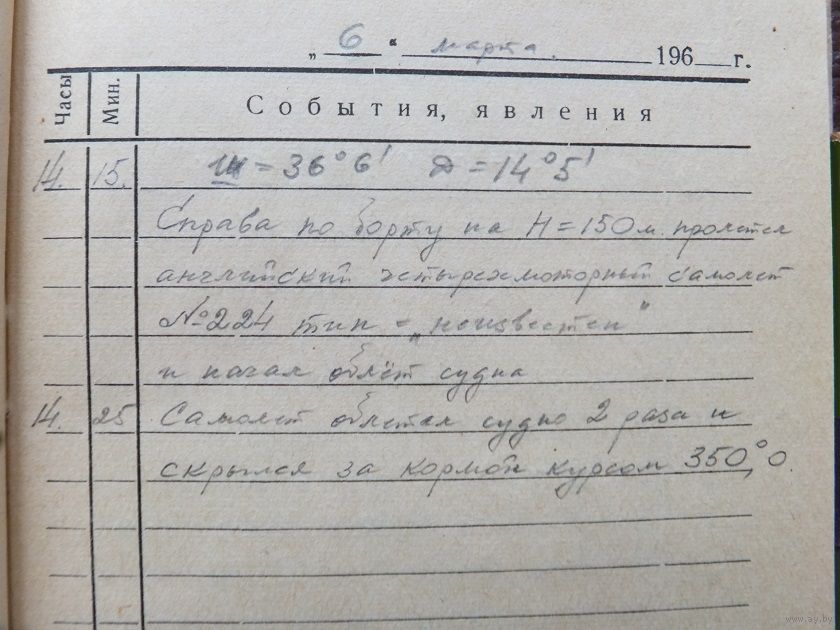 „ 6 “ марта. 196 г.
Часы Мин. События, явления
14. 15. Ш = 36° 6' Д = 14° 5'
Справа по борту на Н = 150 м. пролетел
английский четырехмоторный самолет
№ 224 тип – „неизвестен”
и начал облёт судна
14. 25 Самолет облетел судно 2 раза и
скрылся за кормой курсом 350°,0.
www.ay.by